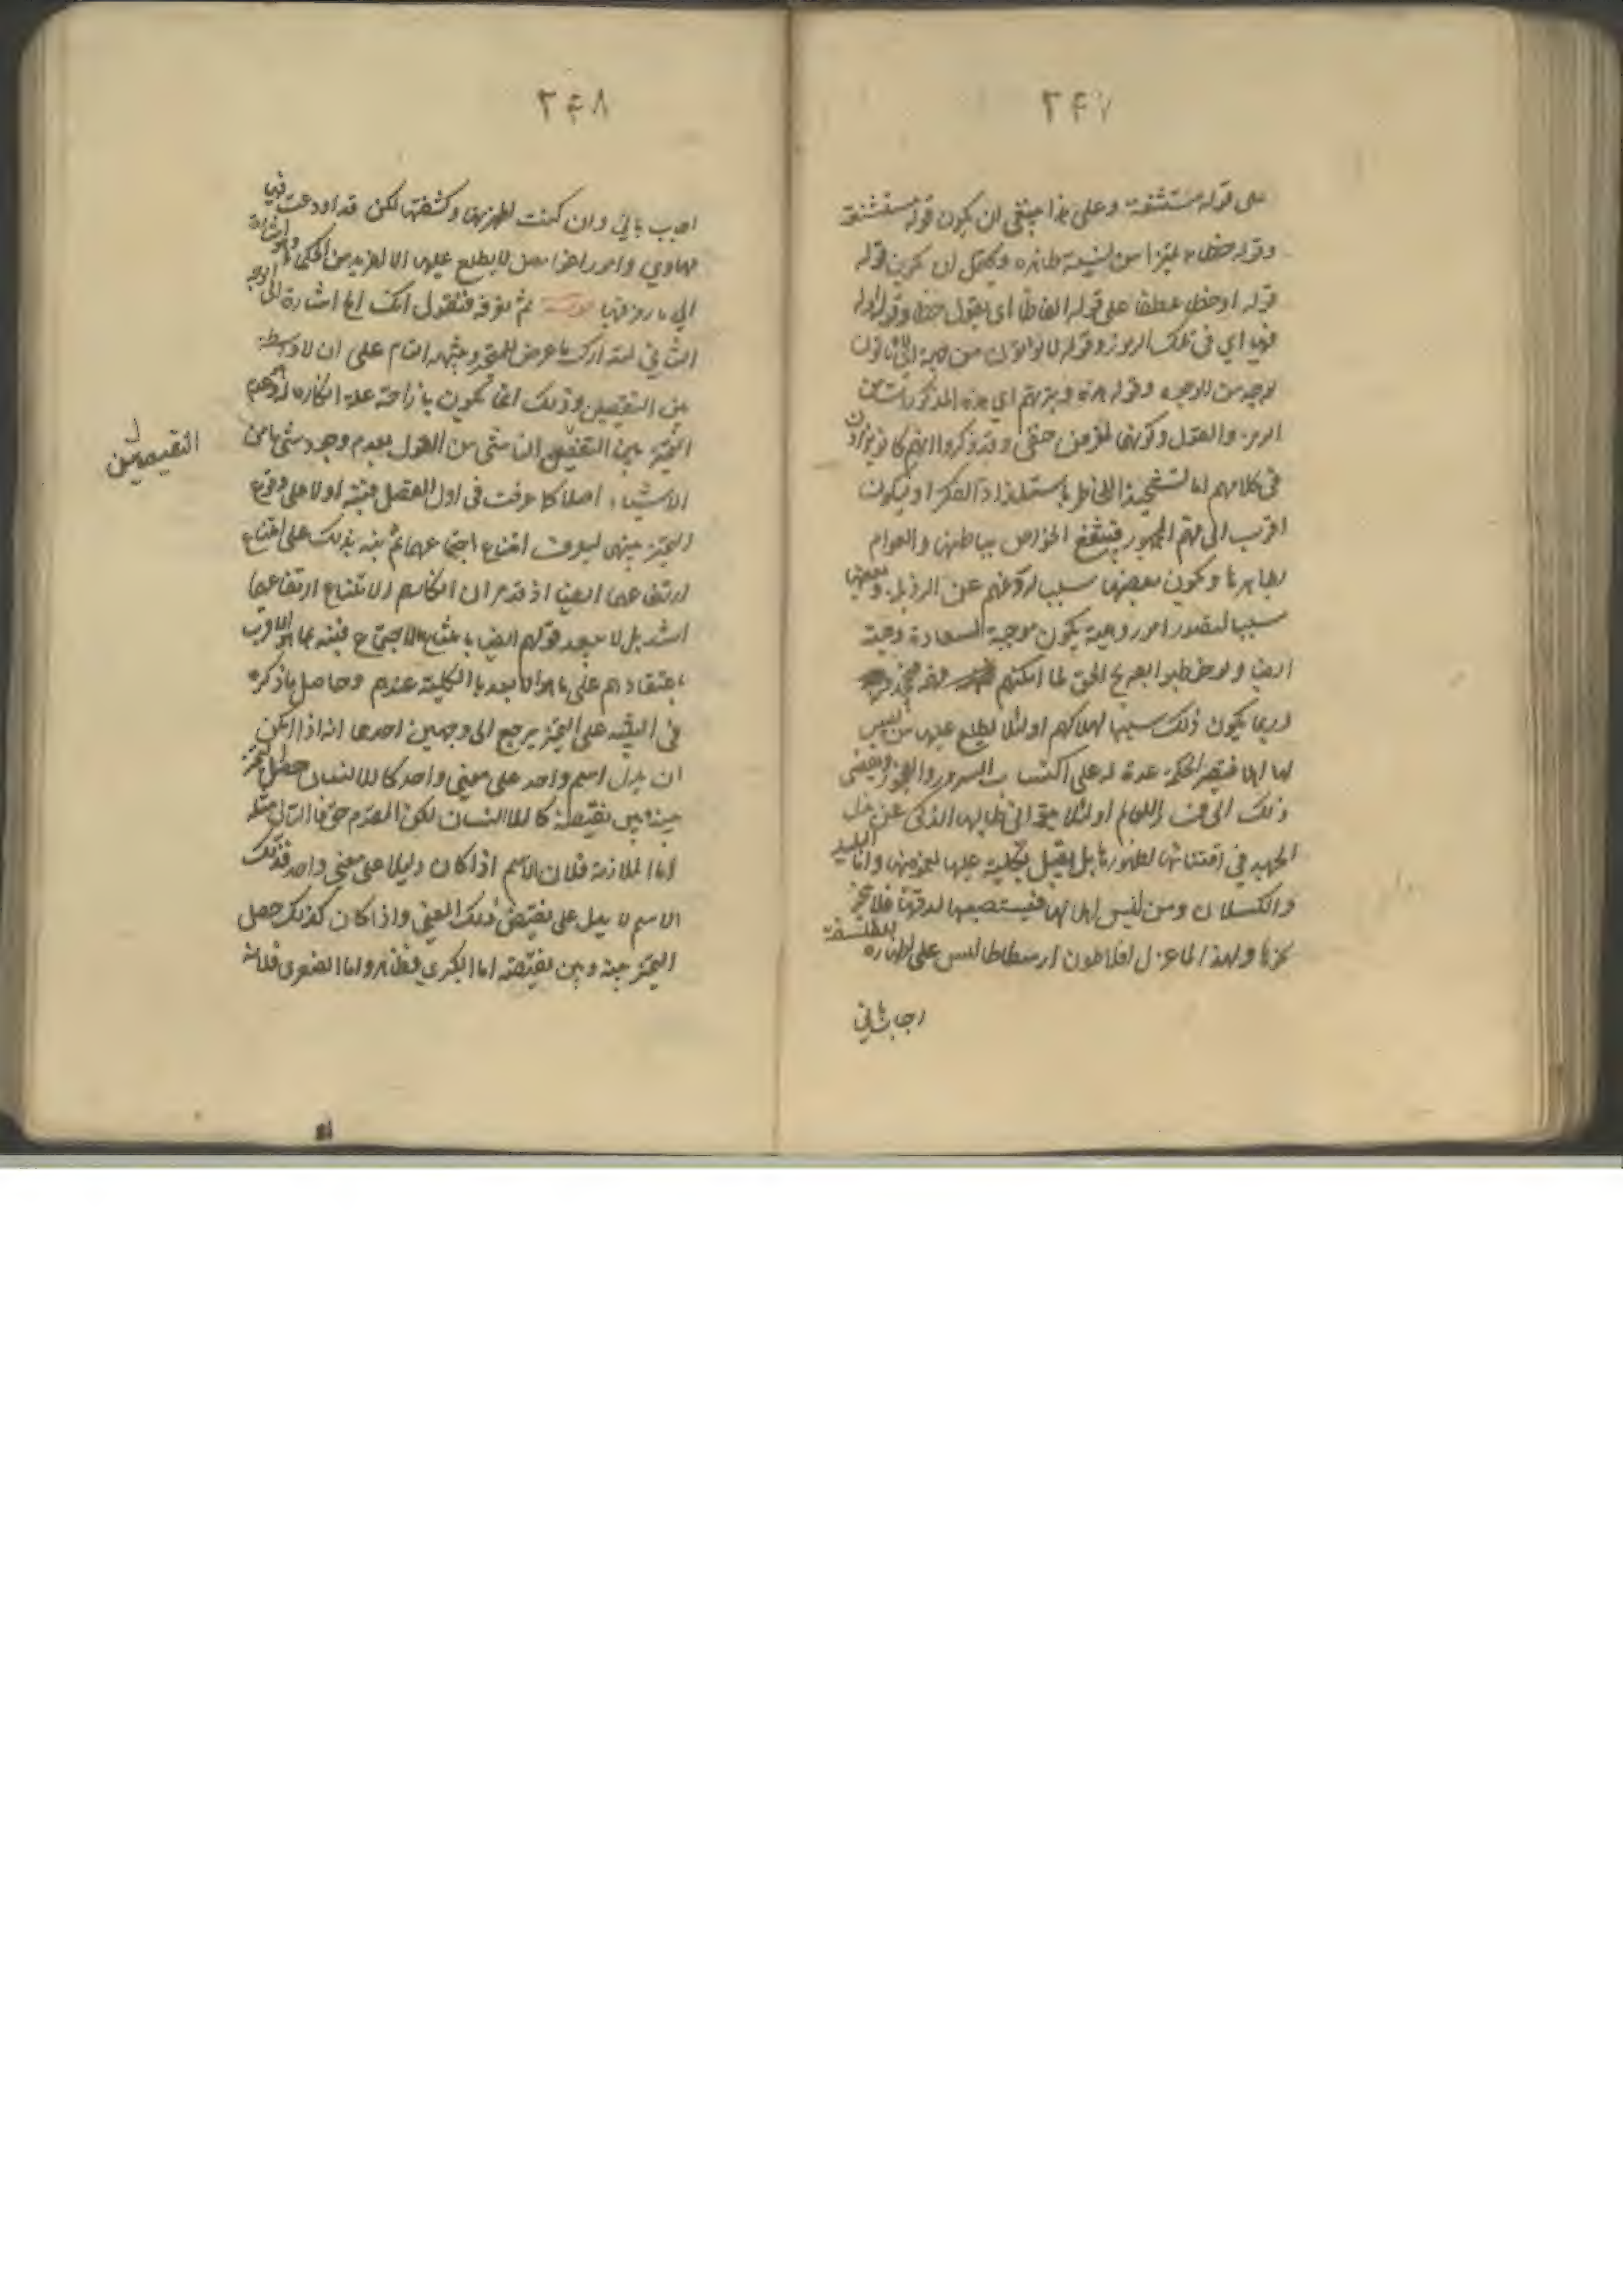 ٢٤٧
على قوله مستشنعة وعلى هذا ينبغى ان يكون قوله مستشنعة
وقوله خطاء
قوله او خطا عطفا على قوله الفاظا اى يقول خطا وقوله وله
فيها اي فى تلك الرموز وقوله
لوجه من الوجوه وقوله هذه وتيرتهم اي هذه المذكورات من
الرمز والقول وكونهما لغرض خفى وقد ذكروا انهم كانوا يرمزون
فى كلامهم اما لتشحيذ الخاطر باستلذاذ الفكر او ليكون
اقرب الى فهم الجمهور فينتفع الخواص بباطنها والعوام
بظاهرها ويكون بعضها سببا لردعهم عن الرذيلة وبعضها
سببا لتصور امور وهمية يكون موجبة لسعادة وهمية
ايضا ولو خوطبوا بصريح الحق لما امكنهم
وربما يكون ذلك سببا لهلاكهم او لئلا يطلع عليها من ليس
لها اهلا فيصير الحكمة عدة له على اكتساب الشرور والفجور ويفضى
ذلك الى العالم او لئلا طالبها الذكى عن بذل
الجهد في اقتنائها لظهورها بل يقبل بكليته عليها لغموضها واما البليد
والكسلان ومن ليس اهلا لها فيستصعبها لدقتها فلا
ولهذا لما عزل افلاطون ارسطاطاليس على اظهاره للفلسفة
اجاب باني
٢٤٨
اجاب باني وان كنت اظهرتها وكشفتها لكن قد اودعت فيها
مهاوي وامور لا يطلع عليها الا الفريد من الحكماء وهو اشارة
الي ما رمز فيها ثم تعرفه فنقول انك الخ اشارة الى الوجه
الثاني لتدارك ما عرض للمتحير وتنبيهه التام على ان لا واسطة
بين النقيضين وذلك انما يكون بازاحة علة انكاره
التميز بين النقيضين الناشى من القول بعدم وجود شىء من
الاشياء اصلا كما عرفت فى اول الفصل فنبه اولا على وقوع
التميز بينهما ليعرف امتناع اجتماعهما ثم نبه بذلك على امتناع
ارتفاعهما ايضا اذ انكارهم الامتناع ارتفاعهما
اشد بل لا يبعد قولهم ايضا بامتناع الاجتماع فنبه بما هو الاقرب
باعتقادهم على ما هو الابعد بالكلية عندهم وحاصل ما ذكره
فى التنبيه على التميز يرجع الى وجهين احدهما انه اذا امكن
ان يدل اسم واحد على معنى واحد كالانسان حصل التميز
بينه وبين نقيضه كاللاانسان لكن المقدم حق فالتالى مثله
اما الملازمة فلان الاسم اذا كان دليلا على معنى واحد فذلك
الاسم لا يدل على نقيض ذلك المعنى واذا كان كذلك حصل
التميز بينه وبين نقيضه اما الكبرى فظاهر واما الصغرى فلانه
النقيضين